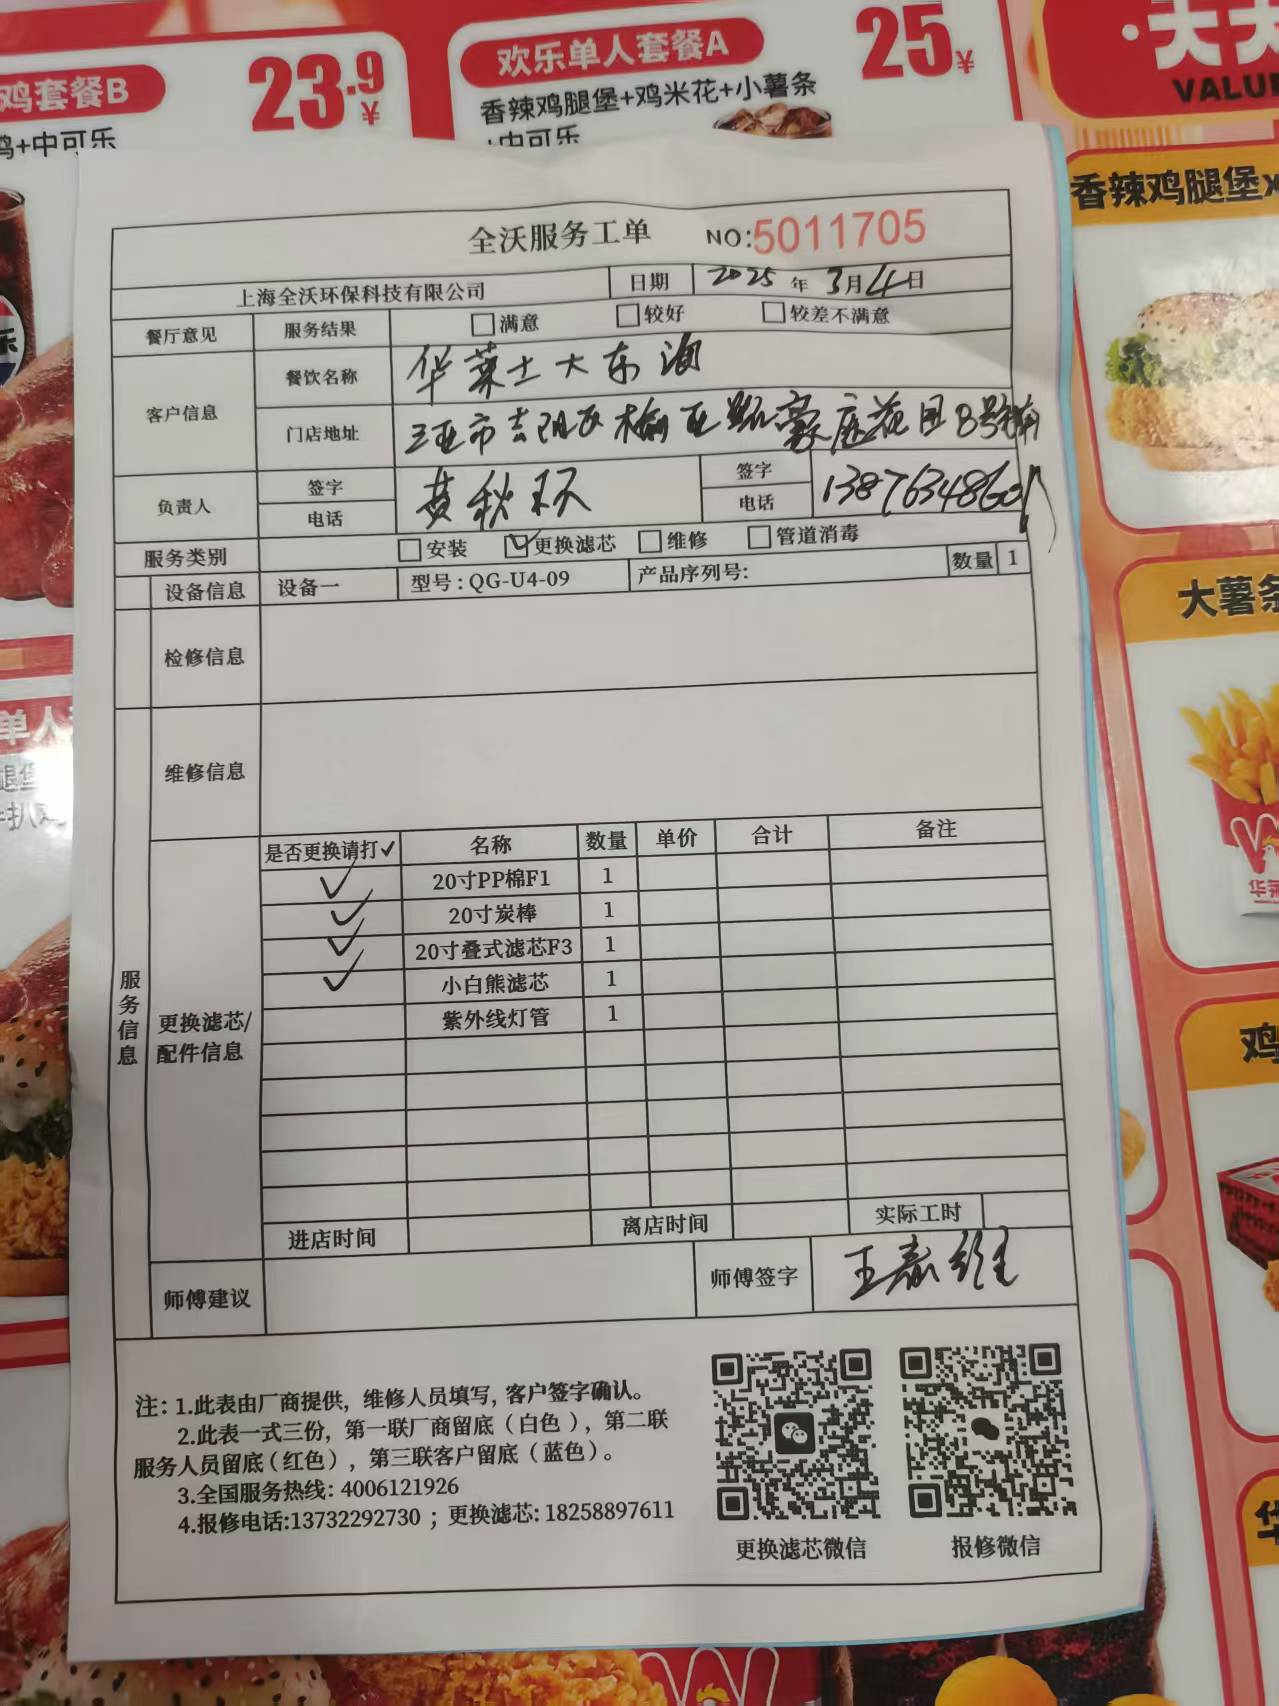 鸡套餐B
23.9
¥
鸡+中可乐
欢乐单人套餐A
25
¥
香辣鸡腿堡+鸡米花+小薯条
+中可乐
VALUE
香辣鸡腿堡x
大薯条
鸡
单人
腿堡
全沃服务工单 NO:5011705
上海全沃环保科技有限公司 日期 2025年3月4日
餐厅意见 服务结果 满意 较好 较差不满意
客户信息 餐饮名称 华莱士大东海
门店地址 三亚市吉阳区榆亚路豪庭花园B号铺
负责人 签字 电话 黄秋环 签字 电话 1387634860
服务类别 安装 ✓更换滤芯 维修 管道消毒
设备信息 设备一 型号:QG-U4-09 产品序列号: 数量 1
检修信息
维修信息
服务信息
更换滤芯/
配件信息
是否更换请打✓ 名称 数量 单价 合计 备注
✓ 20寸PP棉F1 1
✓ 20寸炭棒 1
✓ 20寸叠式滤芯F3 1
✓ 小白熊滤芯 1
紫外线灯管 1
进店时间 离店时间 实际工时
师傅建议 师傅签字
注:1.此表由厂商提供,维修人员填写,客户签字确认。
2.此表一式三份,第一联厂商留底(白色),第二联
服务人员留底(红色),第三联客户留底(蓝色)。
3.全国服务热线:4006121926
4.报修电话:13732292730;更换滤芯:18258897611
更换滤芯微信
报修微信